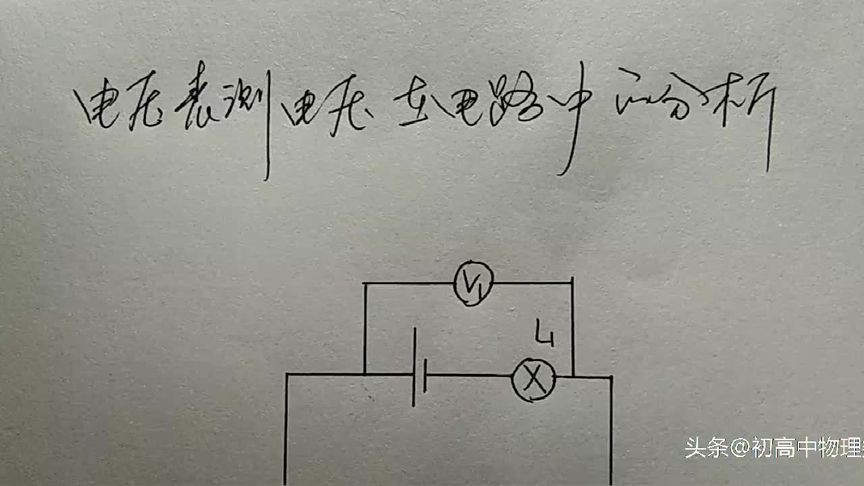 电压表测电压在电路中的分析
V₁
L₁
头条@初高中物理